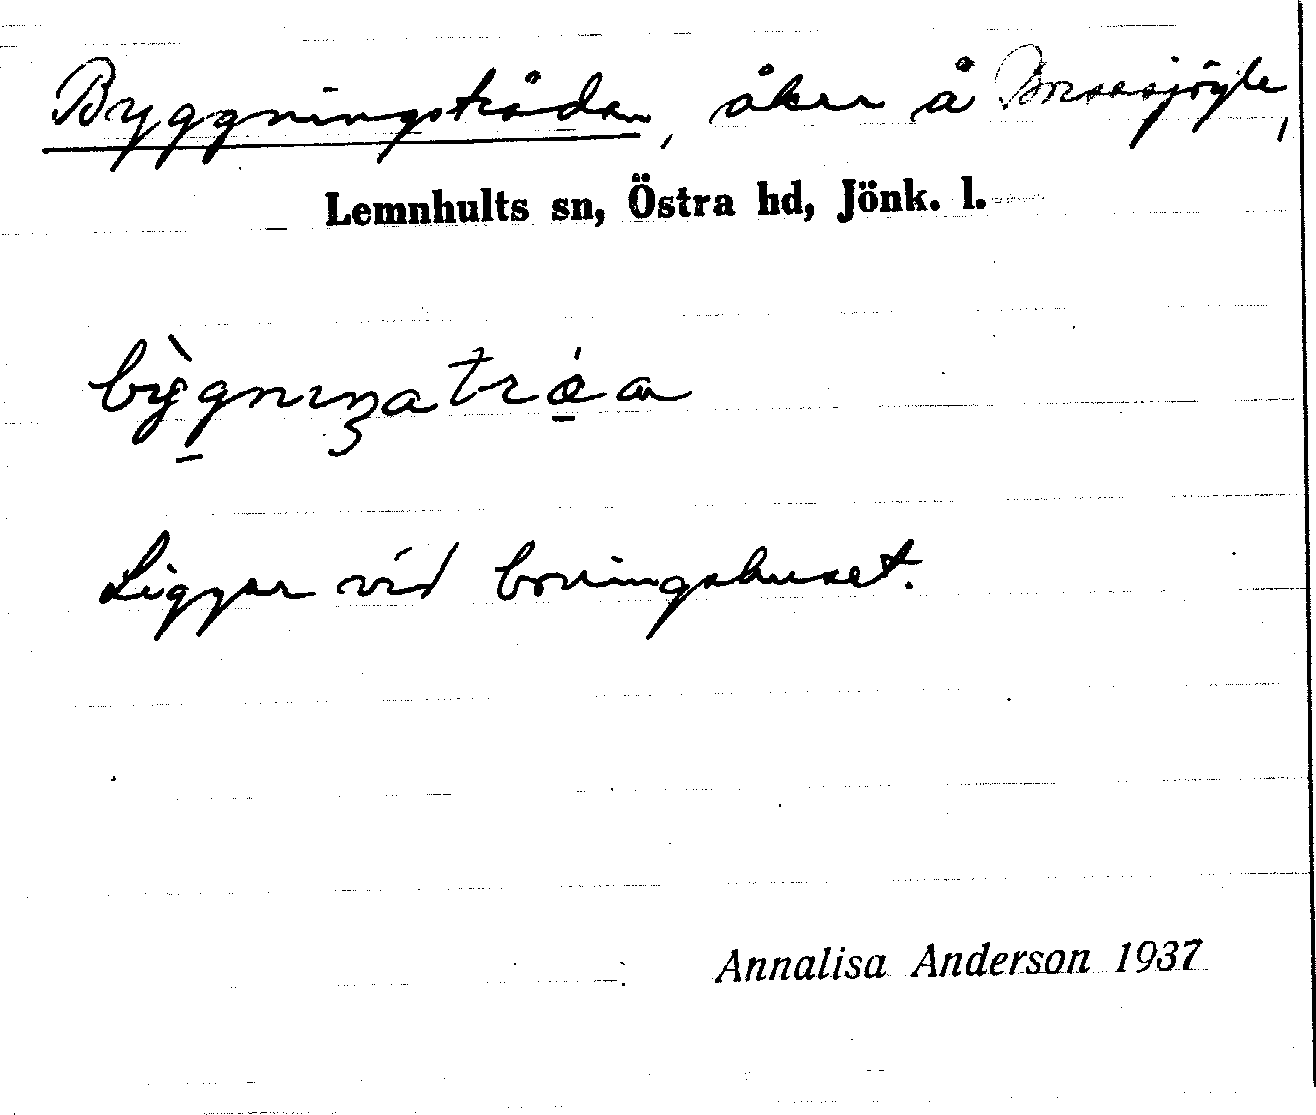 Byggningstrådan, åker å
Lemnhults sn, Östra hd, Jönk. l.
Ligger vid boningshuset.
Annalisa Anderson 1937